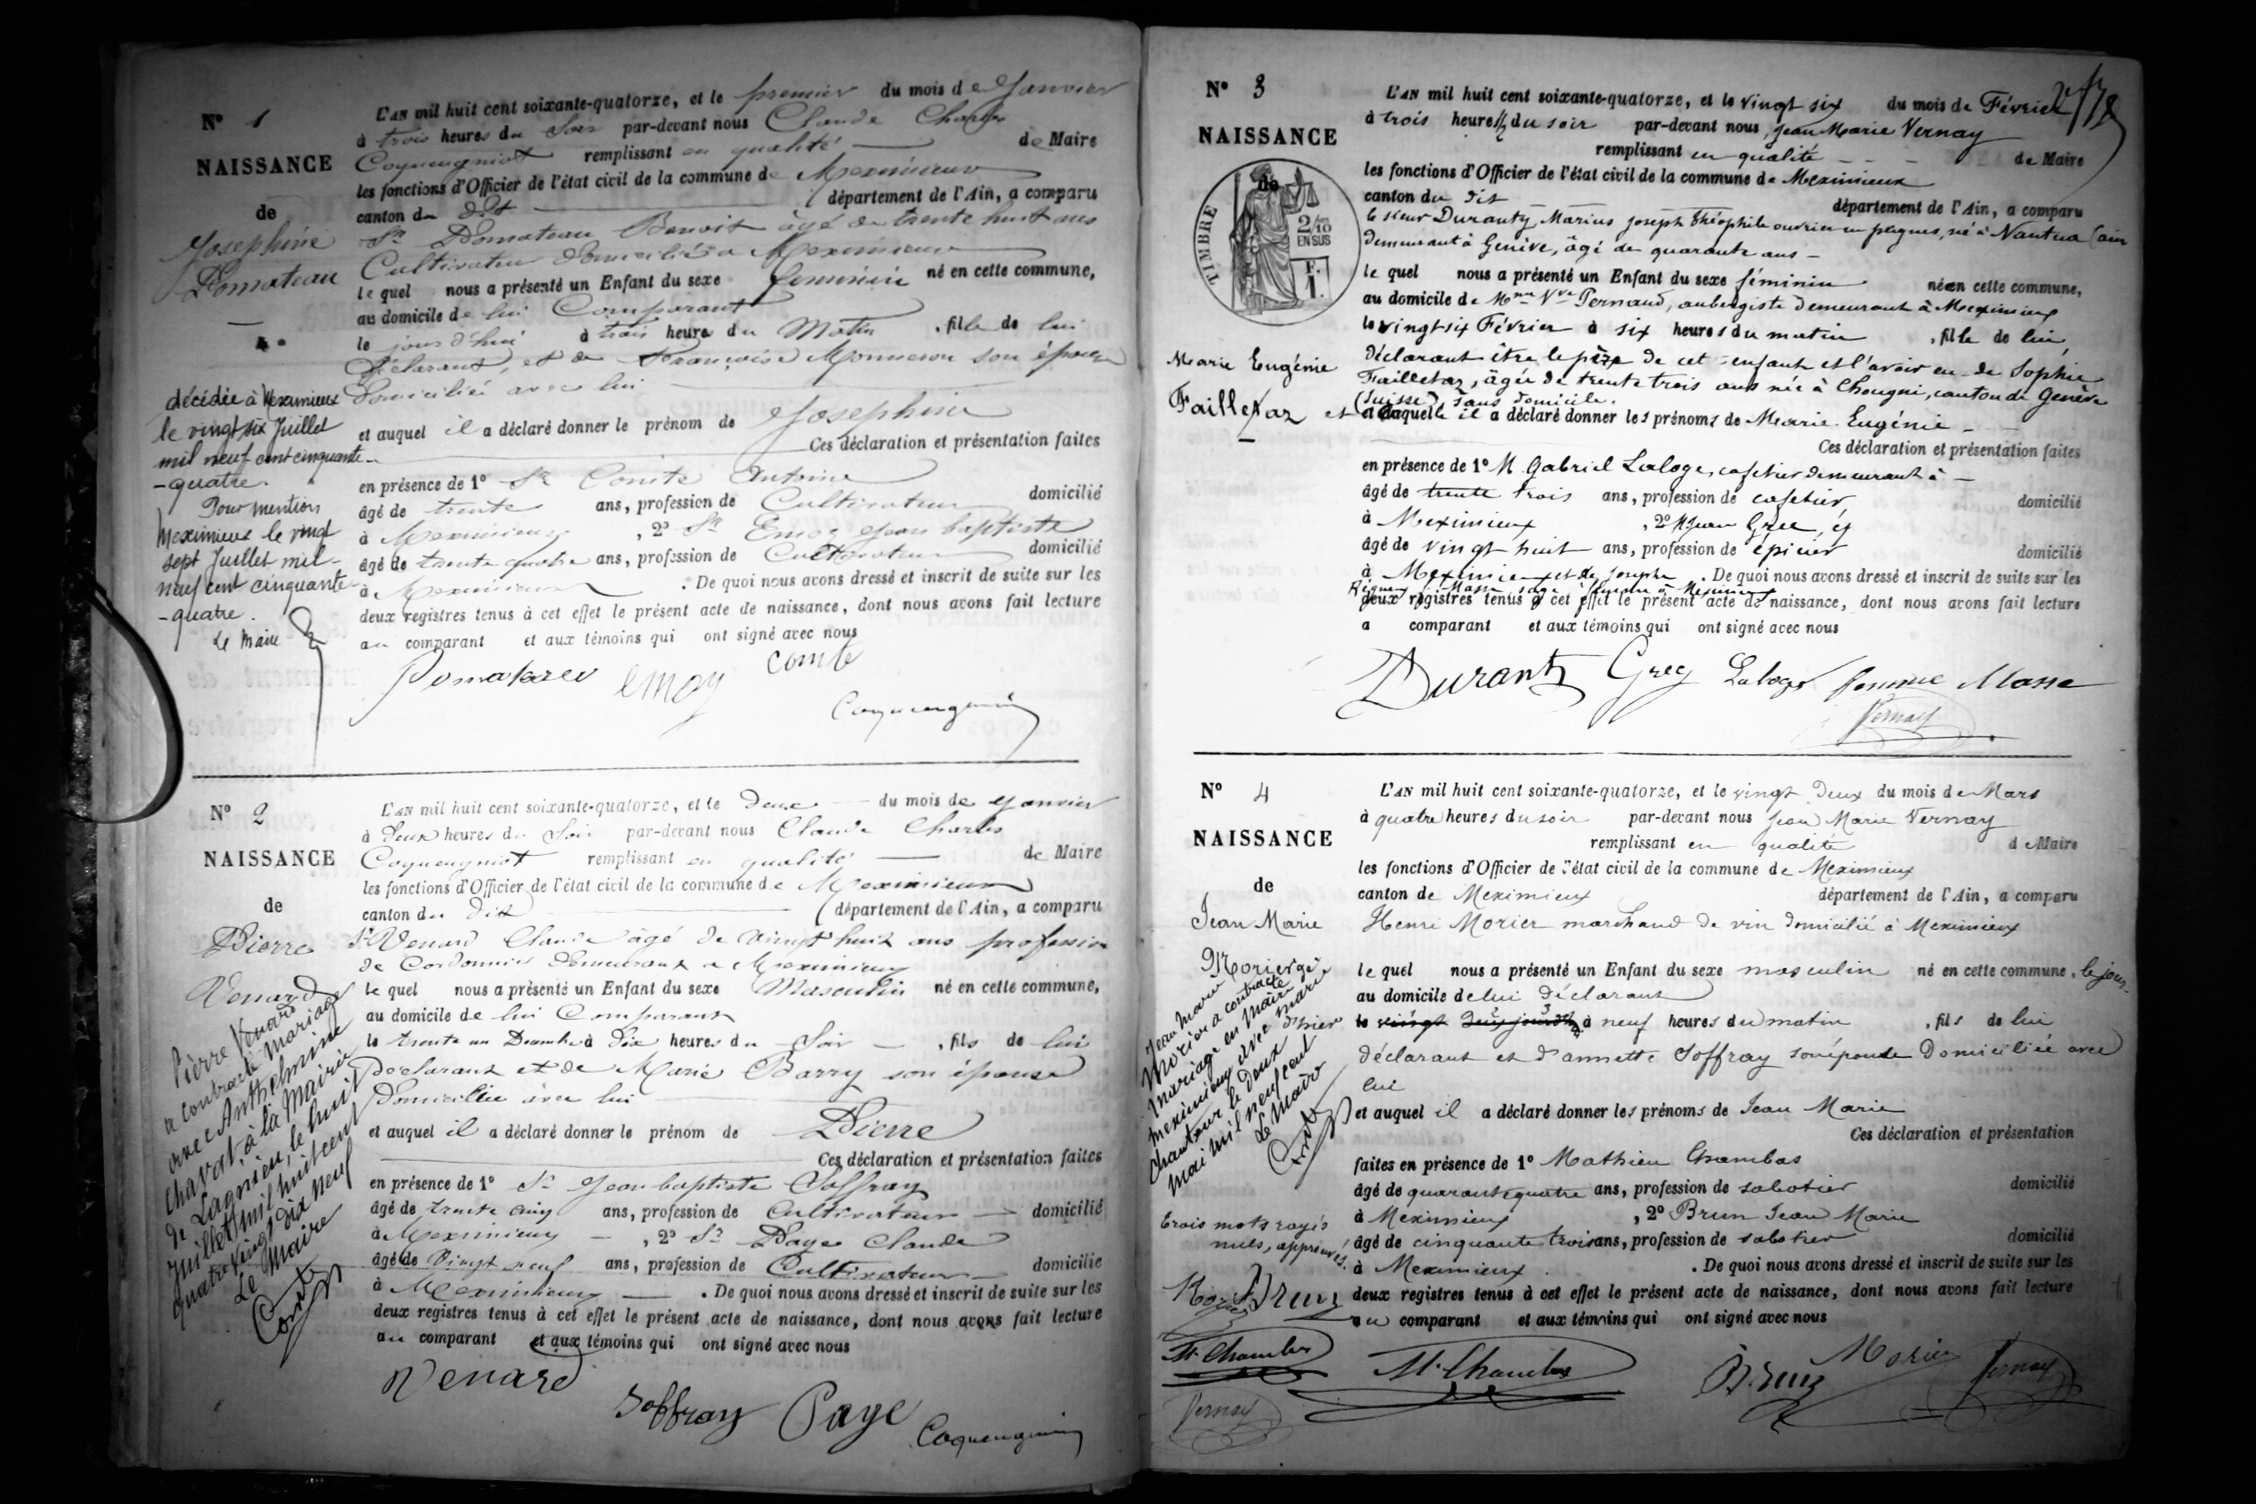 N° 1
NAISSANCE
de
Josephine
Pomateau
décédée à Meximieux
le vingt six Juillet
mil neuf cent cinquante
-quatre.
Pour mention
Meximieux le vingt
sept Juillet mil-
neuf cent cinquante-
-quatre.
Le Maire
L'AN mil huit cent soixante-quatorze, et le premier du mois de Janvier
à trois heures du Soir par-devant nous Claude Charles
Coquengniot remplissant en qualité de Maire
les fonctions d'Officier de l'état civil de la commune de Meximieux
canton du dit département de l'Ain, a comparu
Sr Pomateau Benoit âgé de trente huit ans
Cultivateur domicilié à Meximieux
le quel nous a présenté un Enfant du sexe feminin né en cette commune,
au domicile de lui Comparant
le jour d'hui à trois heures du Matin , fille de lui
Déclarant, et de Françoise Monneron son épouse
domiciliée avec lui
et auquel il a déclaré donner le prénom de Josephine
Ces déclaration et présentation faites
en présence de 1° Sr Comte Antoine
âgé de trente ans, profession de Cultivateur domicilié
à Meximieux , 2° Sr Emoy Jean baptiste
âgé de trente quatre ans, profession de Cultivateur domicilié
à Meximieux . De quoi nous avons dressé et inscrit de suite sur les
deux registres tenus à cet effet le présent acte de naissance, dont nous avons fait lecture
au comparant et aux témoins qui ont signé avec nous
emoy comte
N° 2
NAISSANCE
de
Pierre
Venard
Pierre Venard
a contracté mariage
avec Anthelmine
Chavat, à la Mairie
de Lagnieu, le huit
Juillet mil huit cent
quatre vingt dix neuf
Le Maire
L'AN mil huit cent soixante-quatorze, et le Deux du mois de Janvier
à Deux heures du Soir par-devant nous Claude Charles
Coquengniot remplissant en qualité de Maire
les fonctions d'Officier de l'état civil de la commune de Meximieux
canton du dit département de l'Ain, a comparu
Sr Venard Claude âgé de vingt huit ans profession
de Cordonnier demeurant a Meximieux
le quel nous a présenté un Enfant du sexe Masculin né en cette commune,
au domicile de lui Comparant
le trente un Décembre à Dix heures du Soir , fils de lui
Declarant et de Marie Barry son épouse
Domiciliée avec lui
et auquel il a déclaré donner le prénom de Pierre
Ces déclaration et présentation faites
en présence de 1° Sr Jean baptiste Soffray
âgé de trente cinq ans, profession de Cultivateur domicilié
à Meximieux , 2° Sr Page Claude
âgé de Vingt neuf ans, profession de Cultivateur domicilié
à Meximieux . De quoi nous avons dressé et inscrit de suite sur les
deux registres tenus à cet effet le présent acte de naissance, dont nous avons fait lecture
au comparant et aux témoins qui ont signé avec nous
Venard
Soffray Page
N° 3
NAISSANCE
de
TIMBRE
2/10
EN SUS
F.
1.
Marie Eugénie
Failletaz
L'AN mil huit cent soixante-quatorze, et le vingt six du mois de Février
à trois heures 1/2 du soir par-devant nous Jean Marie Vernay
remplissant en qualité de Maire
les fonctions d'Officier de l'état civil de la commune de Meximieux
canton du dit département de l'Ain, a comparu
le sieur Duranty Marius Joseph Théophile ouvrier en peignes, né à Nantua (ain
demeurant à Genève, âgé de quarante ans -
le quel nous a présenté un Enfant du sexe féminin née en cette commune,
au domicile de Mme Vve Pernaud, aubergiste demeurant à Meximieux
le vingt six Février à six heures du matin , fille de lui
déclarant être le père de cet enfant et l'avoir eu de Sophie
Failletaz, âgée de trente trois ans née à Chougni, canton de Genève
(Suisse), sans domicile.
et à laquelle il a déclaré donner les prénoms de Marie Eugénie
Ces déclaration et présentation faites
en présence de 1° M. Gabriel Laloge, cafetier demeurant à -
âgé de trente trois ans, profession de cafetier domicilié
à Meximieux , 2°
âgé de vingt huit ans, profession de épicier domicilié
à Meximieux et de Josephe . De quoi nous avons dressé et inscrit de suite sur les
deux registres tenus à cet effet le présent acte de naissance, dont nous avons fait lecture
a comparant et aux témoins qui ont signé avec nous
Duranty Laloge femme Masse
Vernay
N° 4
NAISSANCE
de
Jean Marie
Morier
Jean Marie
Morier a contracté
mariage en Mairie
de Meximieux avec Marie
Chanteur le deux
mai mil neuf cent
Le Maire
trois mots rayés
nuls, approuvés.
Morier Brun
M. Chambas
Vernay
L'AN mil huit cent soixante-quatorze, et le vingt deux du mois de Mars
à quatre heures du soir par-devant nous Jean Marie Vernay
remplissant en qualité de Maire
les fonctions d'Officier de l'état civil de la commune de Meximieux
canton de Meximieux département de l'Ain, a comparu
Henri Morier marchand de vin domicilié à Meximieux
le quel nous a présenté un Enfant du sexe masculin né en cette commune, le jour
au domicile de lui déclarant
d'hier le vingt deux à neuf heures du matin , fils de lui
déclarant et d'annette Soffray son épouse Domiciliée avec
lui
et auquel il a déclaré donner les prénoms de Jean Marie
Ces déclaration et présentation
faites en présence de 1° Mathieu Chambas
âgé de quarante quatre ans, profession de sabotier domicilié
à Meximieux , 2° Brun Jean Marie
âgé de cinquante trois ans, profession de sabotier domicilié
à Meximieux . De quoi nous avons dressé et inscrit de suite sur les
deux registres tenus à cet effet le présent acte de naissance, dont nous avons fait lecture
au comparant et aux témoins qui ont signé avec nous
M. Chambas Brun Morier Vernay